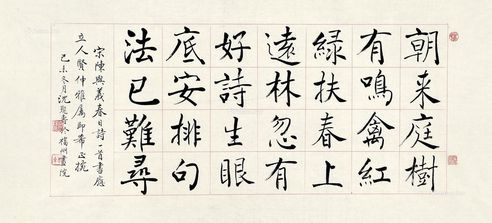 朝来庭樹
有鳴禽紅
緑扶春上
遠林忽有
好詩生眼
底安排句
法已難尋
宋陳與義春日詩一首書應
立人賢仲雅屬即希正捥
己未冬月沈
揚州書院